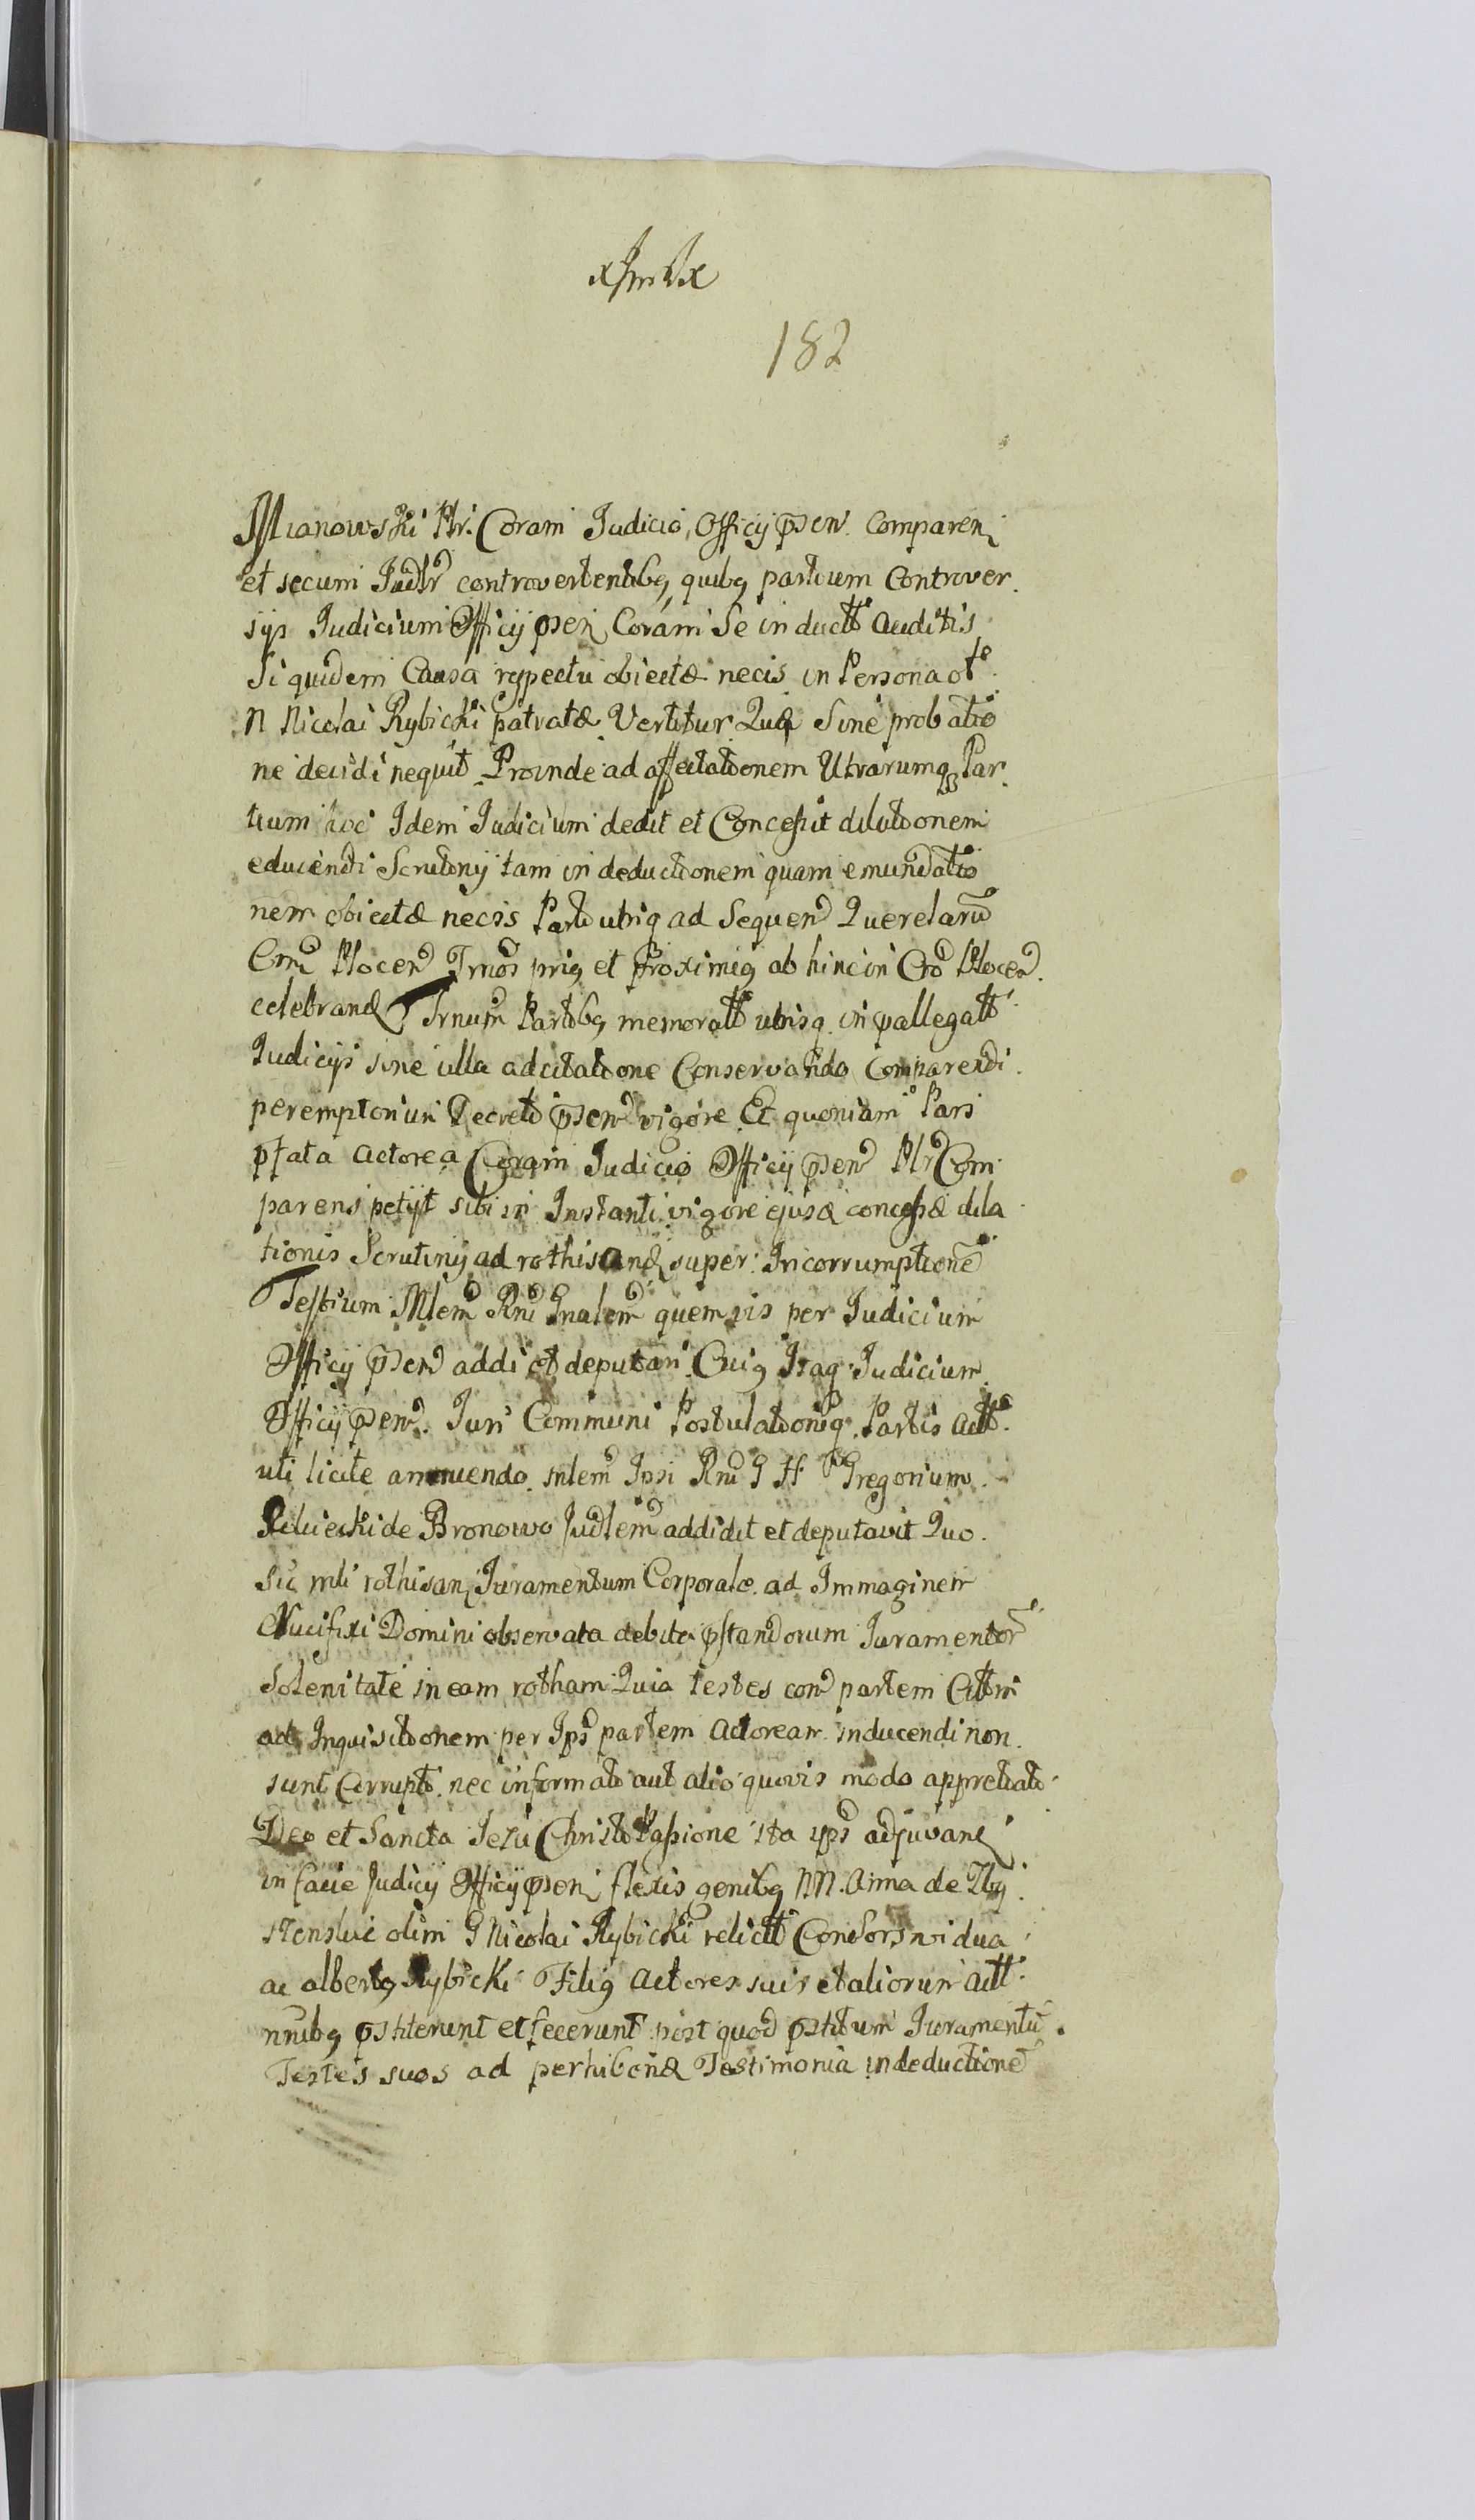 182
Mianowski Mr. Coram Judicio, Officij pñen. Comparen
et secum Judlr controvertentibq, quibq partium Controver.
sijs Judicium Officij pñen Coram Se in duclt auditis
Siquidem Causa respectu obiectæ necis in Persona ol
N Nicolai Rybicki patratæ Vertitur Quæ Sine probatio
ne decidi nequit Proinde ad affectationem Utrarumq Par
tium hoc Idem Judicium dedit et Concessit dilationem
educendi Scrutiny tam in deductionem quam emundatio
nem obiectæ necis Parti utriq ad Sequen Querelaru
Plocen Trnos et proximiq ab hinc in Plocen
celebrand Trnum Partibq memoratt utrisq in pallegatt
Judicijs sine ulla adcitatione Conservando Comparendi
peremptorium Decreto pñen vigore Et quoniam Pars
pfata actorea Coram Judicio Officij pñen Mr Com
parens petijt sibi in Instanti vigore ejusd concessæ dila
tionis Scrutiny ad rothisand super Incorrumptione
Testium Mlem Rni Gnalem quemvis per Judicium
Officij pñen addi et deputari Cuiq Itaq Judicium
Officij pñen. Juri Communi Postulationiq Partis actt
uti licite annuendo mlem Ipsi Rni G H Gregorium
de Bronowo Judlem addidit et deputavit Quo
Sic mli rothisan Juramentum Corporale ad Immaginem
Crucifixi Domini observata debita pstandorum Juramentor
Solenitate in eam rotham Quia testes con partem Cittm
ad Inquisitionem per Ips partem actoream inducendi non
sunt Corrupti nec informati aut alio quovis modo appretiati
Deo et Sancta Jesu Christi Passione ita ips adjuvan
in facie Judicij Officij pñen flexis genibq NN. Anna de
olim G Nicolai Rybicki relictt Consors vidua
ac albertq Rybicki Filiq actores suis et aliorum actt
nnibq pstiterunt et fecerunt post quod pstitum Juramentu
Testes suos ad perhibend Testimonia in deductione